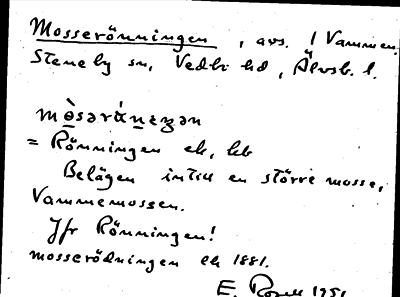 Mosserönningen, avs. 1 Vammen.
Steneby sn, Vedbo hd, Älvsb. l.
mò̱sərά̱neŋən
= Rönningen ek, kb
Belägen intill en större mosse,
Vammemossen.
Jfr Rönningen!
mosserödningen ek 1881.
E. 1951